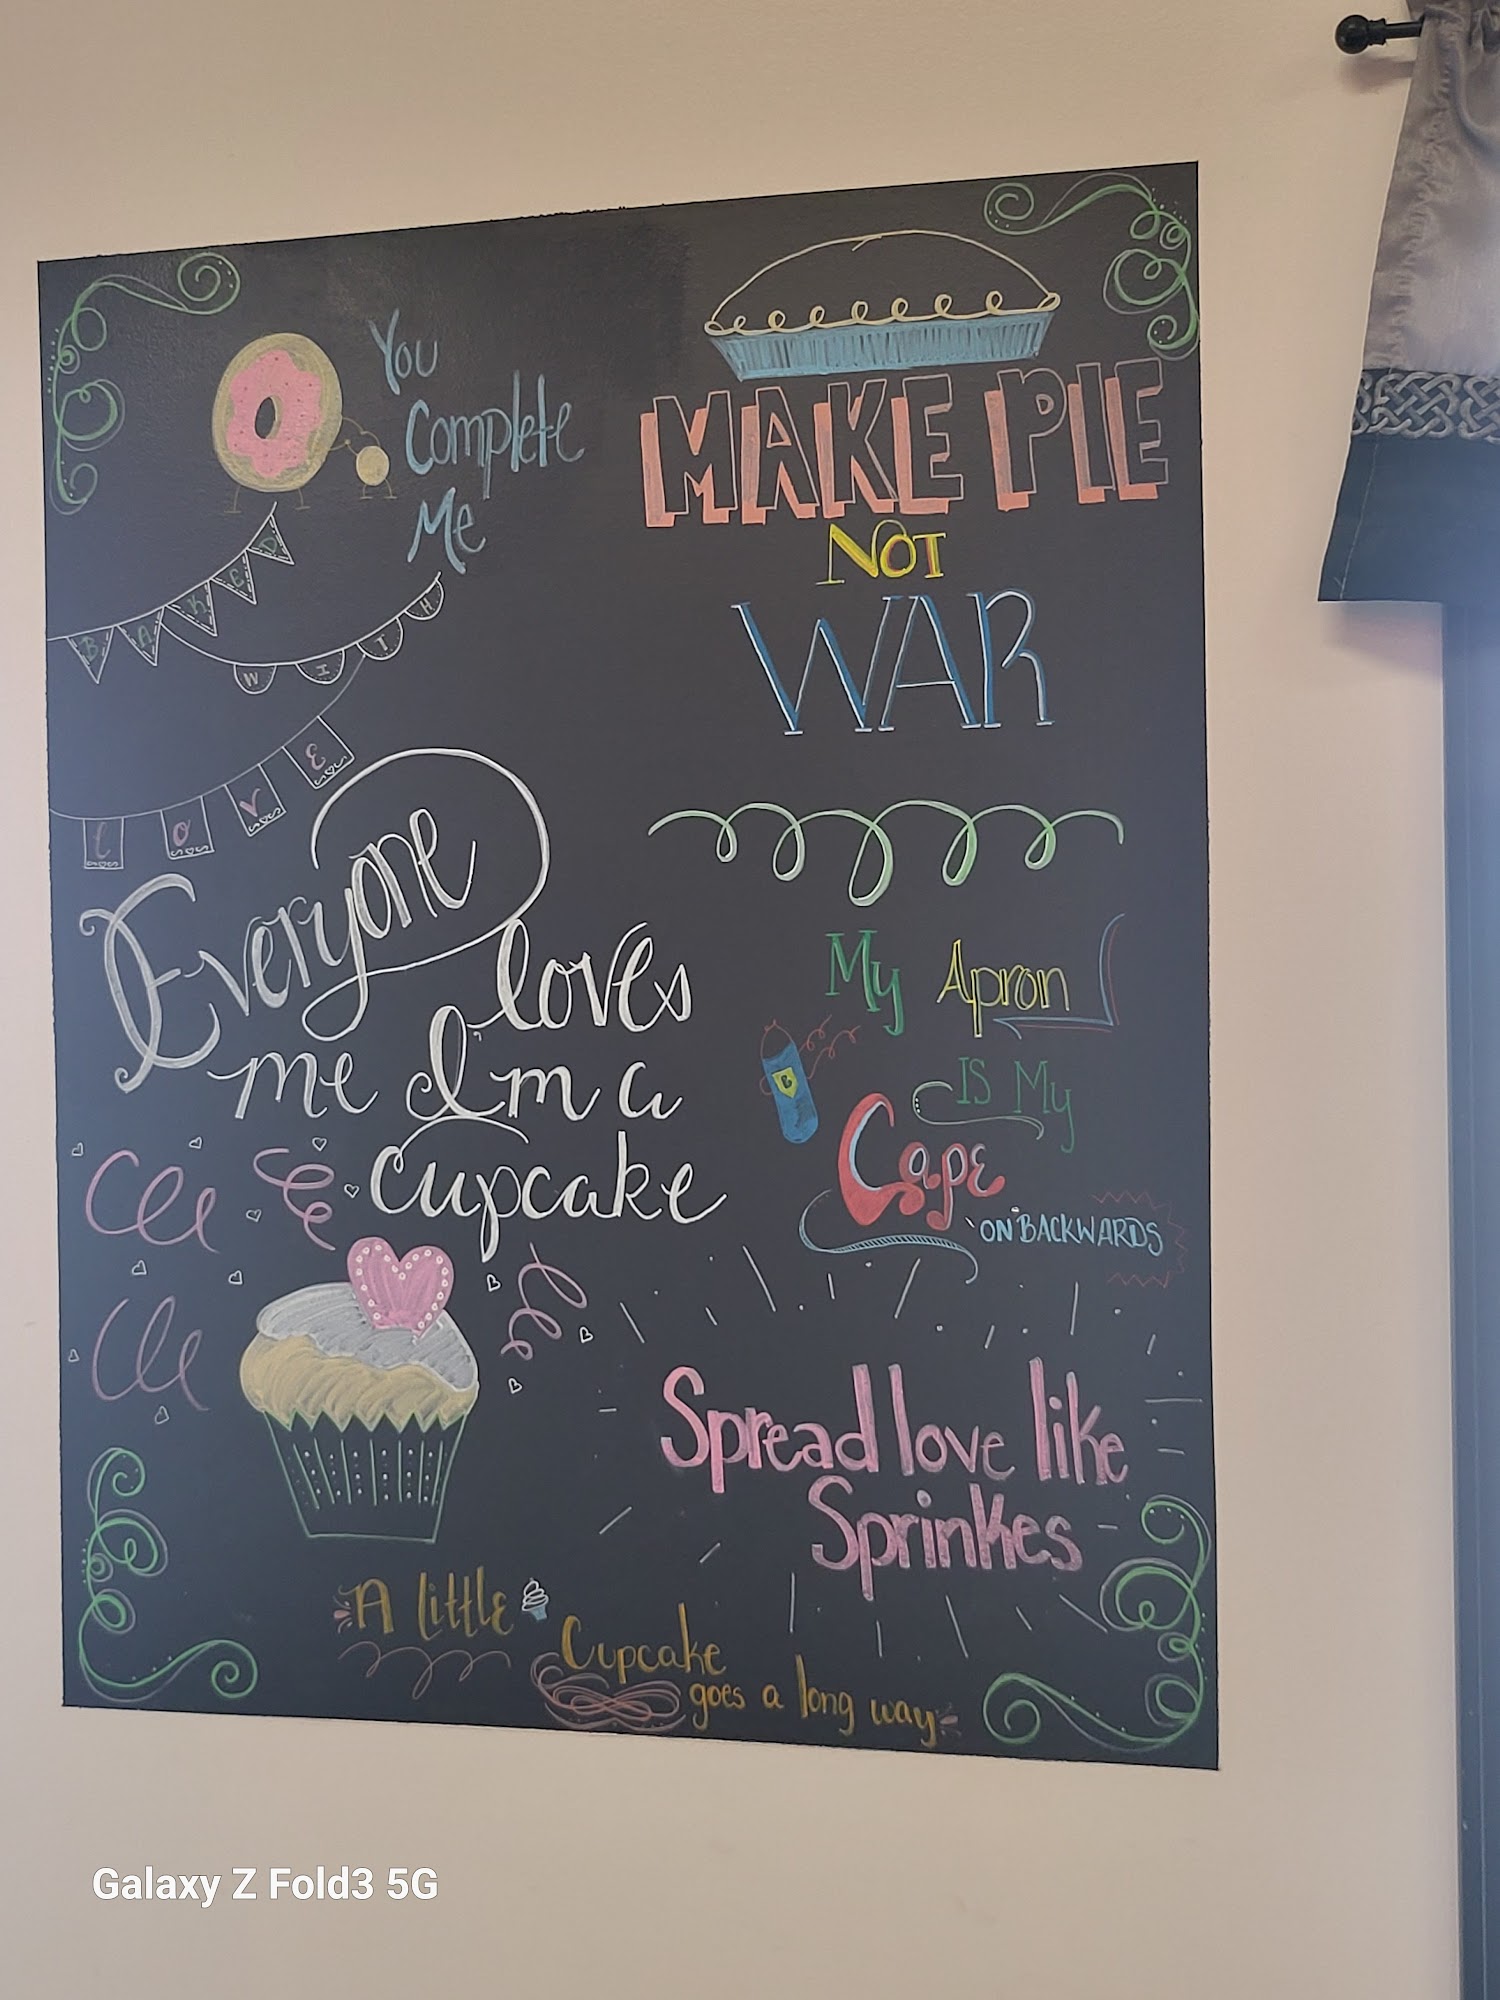 You
Complete
Me
BAKED
WITH
LOVE
MAKE PIE
NOT
WAR
Everyone
loves
me I'm a
cupcake
My Apron
B
IS My
Cape
"ON" BACKWARDS
Spread love like
Sprinkes
A little
Cupcake
goes a long way
Galaxy Z Fold3 5G